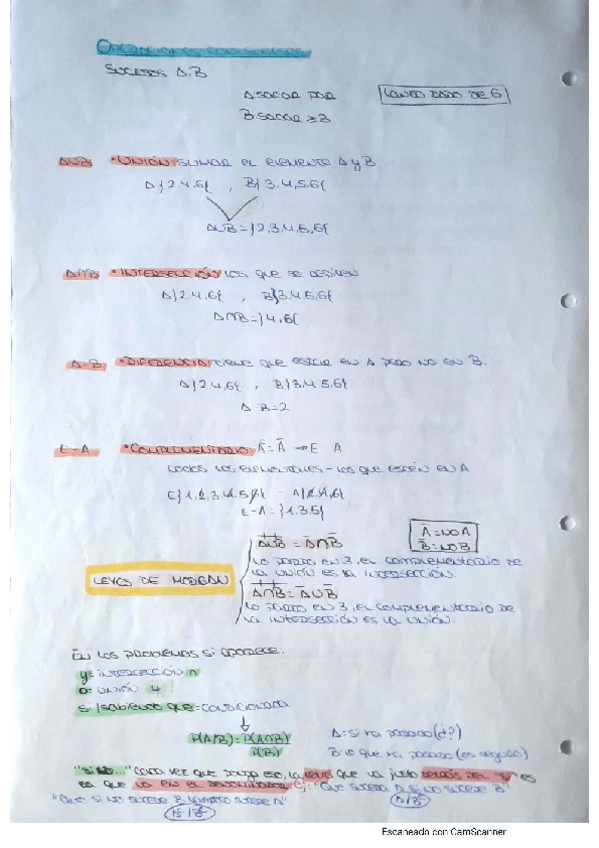 OPERACIONES CON SUCESOS
SUCESOS A,B
A SACAR PAR
LANZO DADO DE 6
B SACAR ≥ B
A∪B • UNIÓN SUMAR EL ELEMENTO A y B
A}2,4,6{ , B}3,4,5,6{
A∪B=}2,3,4,5,6{
A∩B • INTERSECCIÓN LOS QUE SE REPITEN
A}2,4,6{ , B}3,4,5,6{
A∩B=}4,6{
A-B • DIFERENCIA TIENE QUE ESTAR EN A PERO NO EN B.
A}2,4,6{ , B}3,4,5,6{
A B=2
E-A • COMPLEMENTARIO Ā=Ā → E A
TODOS LOS ELEMENTALES - LOS QUE ESTÉN EN A
E}1,2,3,4,5,6{ - A}2,4,6{
E-A=}1,3,5{
Ā=NO A
B̄=NO B
LEYES DE MORGAN
A∪B = Ā∩B̄
LO PARTO EN 3, EL COMPLEMENTARIO DE
LA UNIÓN ES LA INTERSECCIÓN.
A∩B = Ā∪B̄
LO PARTO EN 3, EL COMPLEMENTARIO DE
LA INTERSECCIÓN ES LA UNIÓN.
EN LOS PROBLEMAS SI APARECE:
y = INTERSECCIÓN ∩
o = UNIÓN ∪
si /sabiendo que = CONDICIONADA
P(A/B)=P(A∩B)
P(B)
A = si ha pasado (¿?)
B = lo que ha pasado (es seguro)
"si no..." CADA VEZ QUE PONGA ESO, LA LETRA QUE VA JUSTO DETRÁS DEL "SI" ES
LA QUE VA EN EL DENOMINADOR Ej: "QUE SUCEDA A SI NO SUCEDE B"
A/B̄
"QUE SI NO SUCEDE B TAMPOCO SUCEDE A"
Ā/B̄
Escaneado con CamScanner